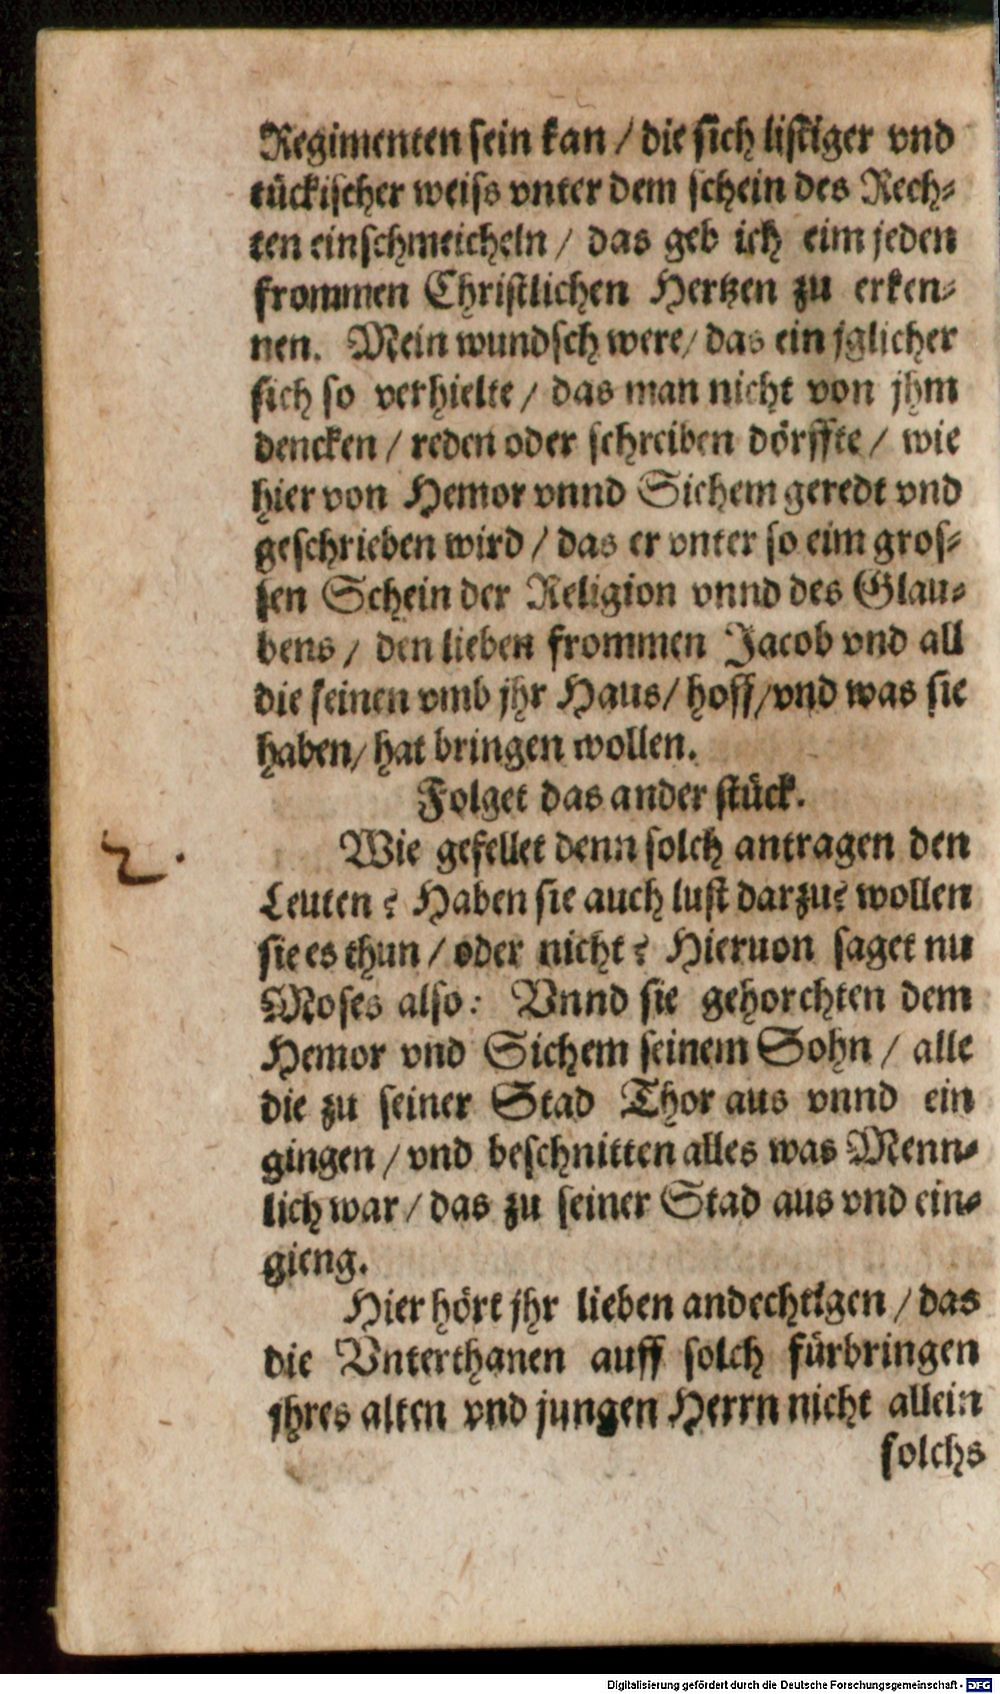 Regimenten sein kan / die sich listiger vnd
tückischer weiss vnter dem schein des Rech-
ten einschmeicheln / das geb ich eim jeden
frommen Christlichen Hertzen zu erken-
nen. Mein wundsch were / das ein jglicher
sich so verhielte / das man nicht von jhm
dencken / reden oder schreiben dörffte / wie
hier von Hemor vnnd Sichem geredt vnd
geschrieben wird / das er vnter so eim gros-
sen Schein der Religion vnnd des Glau-
bens / den lieben frommen Jacob vnd all
die seinen vmb jhr Haus / hoff / vnd was sie
haben / hat bringen wollen.
Folget das ander stück.
2.
Wie gefellet denn solch antragen den
Leuten? Haben sie auch lust darzu? wollen
sie es thun / oder nicht? Hieruon saget nu
Moses also: Vnnd sie gehorchten dem
Hemor vnd Sichem seinem Sohn / alle
die zu seiner Stad Thor aus vnnd ein
gingen / vnd beschnitten alles was Menn-
lich war / das zu seiner Stad aus vnd ein-
gieng.
Hier hört jhr lieben andechtigen / das
die Vnterthanen auff solch fürbringen
jhres alten vnd jungen Herrn nicht allein
solchs
Digitalisierung gefördert durch die Deutsche Forschungsgemeinschaft - DFG